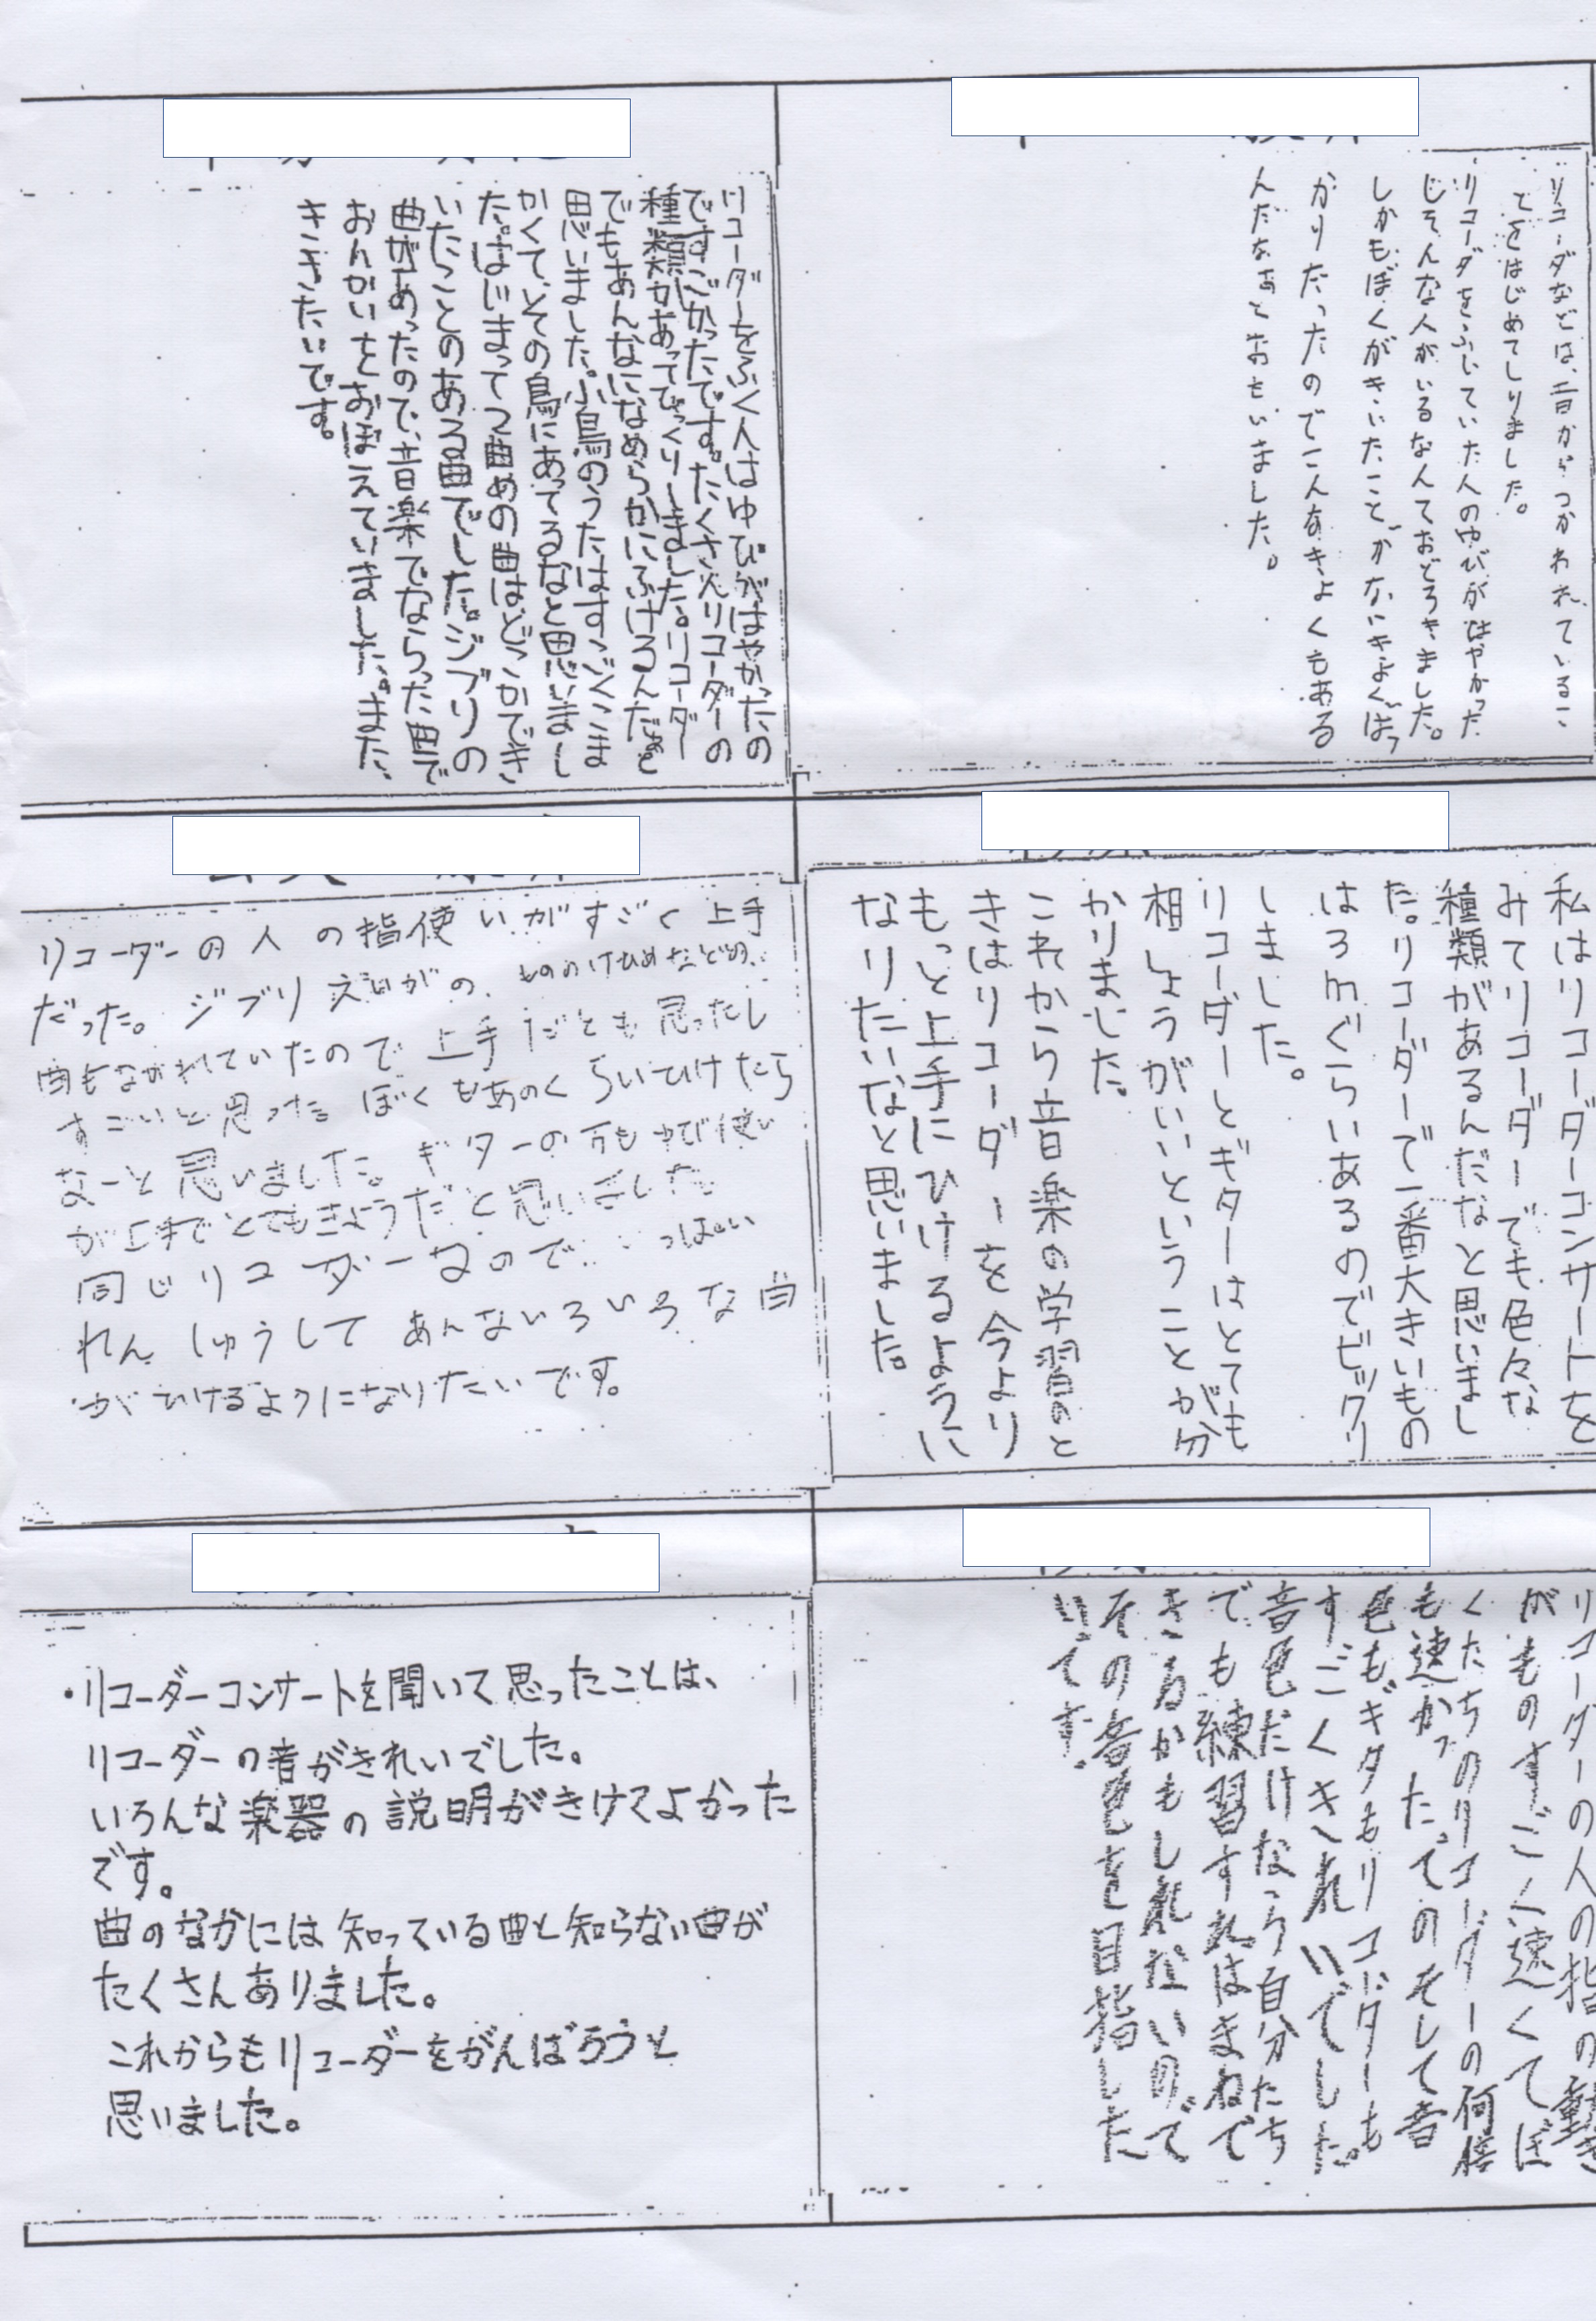 リコーダなどは、昔からつかわれているこ
とをはじめてしりました。
リコーダをふいていた人のゆびがはやかった
しそんな人がいるなんておどろきました。
しかもぼくがきいたことがないきょくばっ
かりだったのでこんなきょくもある
んだなぁとおもいました。
リコーダーをふく人はゆびがはやかったの
ですごかったです。たくさんリコーダーの
種類があってびっくりしました。リコーダー
でもあんなになめらかにふけるんだなと
思いました。小鳥のうたはすごくこま
かくて、その鳥にあってるなと思いまし
た。はじまって1曲めの曲はどこかできい
いたことのある曲でした。ジブリの
曲があったので、音楽でならった曲で
おんかいをおぼえていました。また、
ききたいです。
私はリコーダーコンサートを
みてリコーダーでも色々な
種類があるんだなと思いまし
た。リコーダーで一番大きいもの
は3mぐらいあるのでビックリ
しました。
リコーダーとギターはとても
相しょうがいいということが分
かりました。
これから音楽の学習のと
きはリコーダーを今より
もっと上手にひけるように
なりたいなと思いました。
リコーダーの人の指使いがすごく上手
だった。ジブリえいがの、もののけひめなどの
曲もながれていたので上手だとも思ったし
すごいと思った。ぼくもあのくらいひけたら
なーと思いました。ギターの方もゆび使い
が上手でとてもきようだと思いました。
同じリコーダーなので、いっぱい
れんしゅうしてあんないろいろな曲
がひけるようになりたいです。
リコーダーの人の指の動き
がものすごく速くてぼ
くたちのリコーダーの何倍
も速かったってのそして音
色もギタもリコーダーも
すごくきれいでした。
音色だけなら自分たち
でも練習すればまねで
きるかもしれないので
その音色を目指した
いです。
・リコーダーコンサートを聞いて思ったことは、
リコーダーの音がきれいでした。
いろんな楽器の説明がきけてよかった
です。
曲のなかには知っている曲と知らない曲が
たくさんありました。
これからもリコーダーをがんばろうと
思いました。